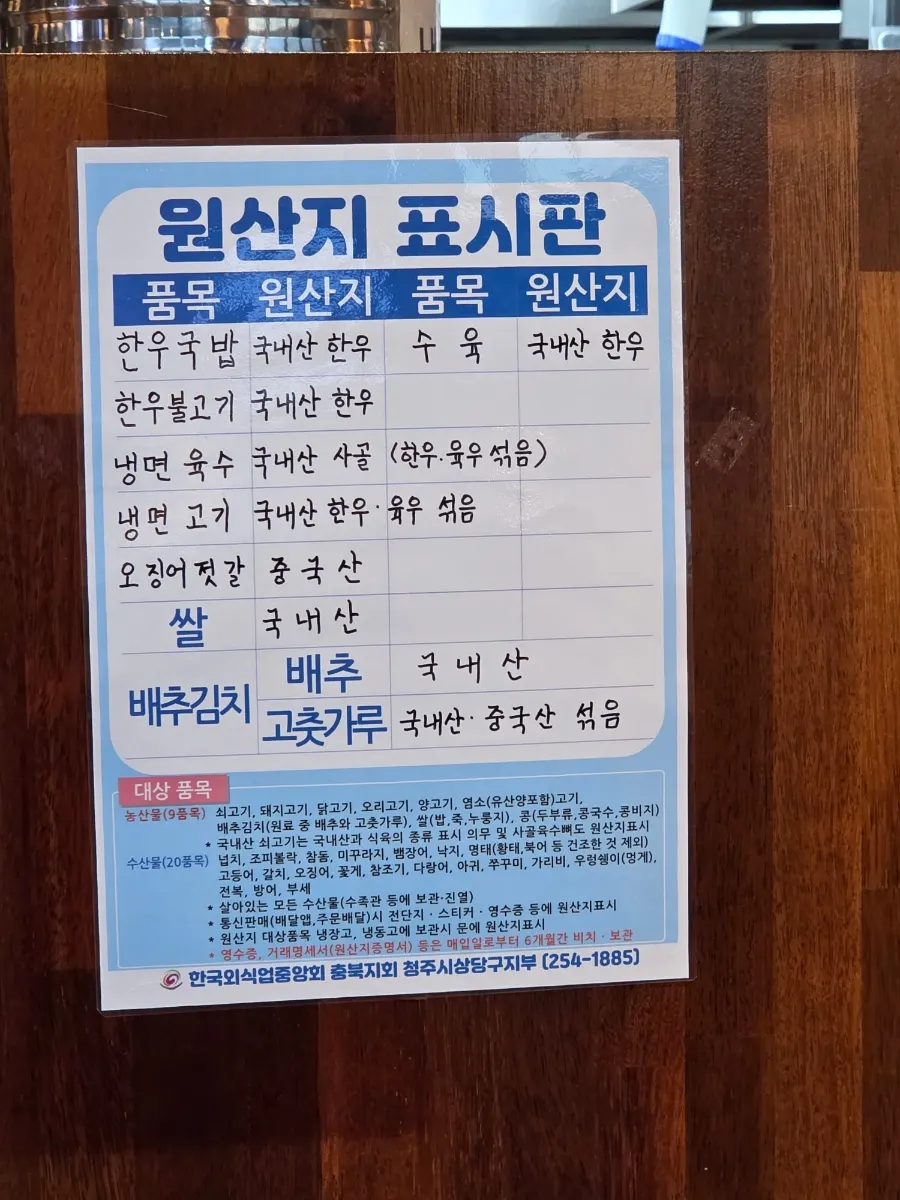 원산지 표시판
품목 원산지 품목 원산지
한우국밥 국내산 한우 수육 국내산 한우
한우불고기 국내산 한우
냉면 육수 국내산 사골 (한우.육우 섞음)
냉면 고기 국내산 한우·육우 섞음
오징어젓갈 중국산
쌀 국내산
배추김치 배추 국내산
고춧가루 국내산·중국산 섞음
대상 품목
농산물(9품목) 쇠고기, 돼지고기, 닭고기, 오리고기, 양고기, 염소(유산양포함)고기,
배추김치(원료 중 배추와 고춧가루), 쌀(밥,죽,누룽지), 콩(두부류,콩국수,콩비지)
* 국내산 쇠고기는 국내산과 식육의 종류 표시 의무 및 사골육수뼈도 원산지표시
수산물(20품목) 넙치, 조피볼락, 참돔, 미꾸라지, 뱀장어, 낙지, 명태(황태,북어 등 건조한 것 제외)
고등어, 갈치, 오징어, 꽃게, 참조기, 다랑어, 아귀, 쭈꾸미, 가리비, 우렁쉥이(멍게),
전복, 방어, 부세
* 살아있는 모든 수산물(수족관 등에 보관·진열)
* 통신판매(배달앱,주문배달)시 전단지·스티커·영수증 등에 원산지표시
* 원산지 대상품목 냉장고, 냉동고에 보관시 문에 원산지표시
* 영수증, 거래명세서(원산지증명서) 등은 매입일로부터 6개월간 비치·보관
한국외식업중앙회 충북지회 청주시상당구지부 (254-1885)